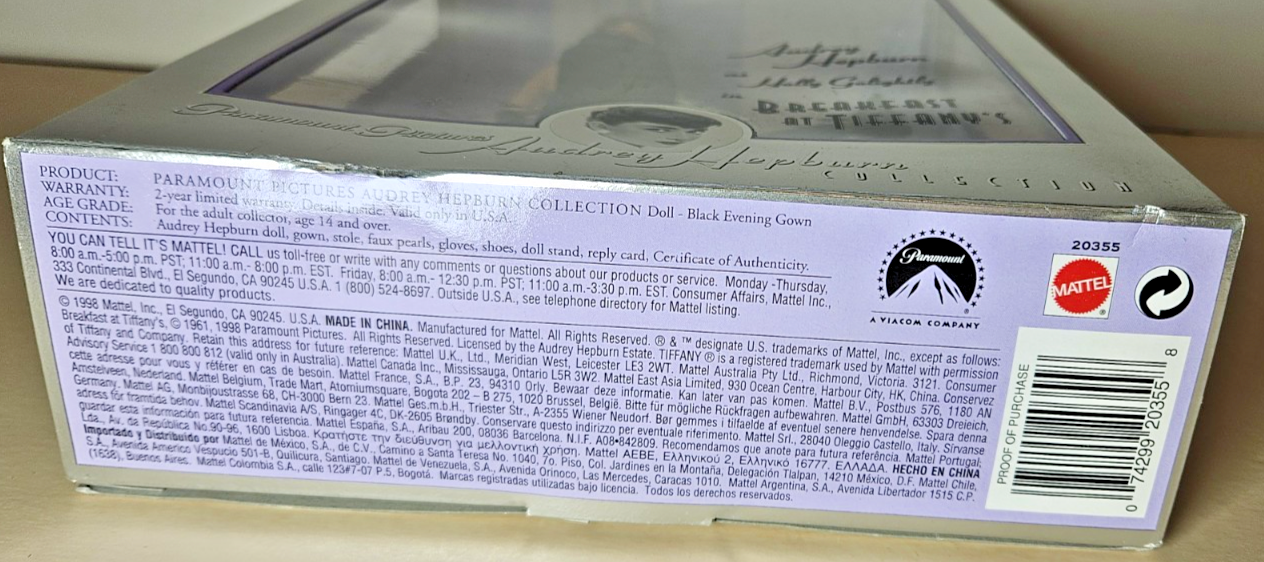 Audrey
Hepburn
as
Holly Golightly
in
BREAKFAST
AT TIFFANY'S
Paramount Pictures
Audrey Hepburn
COLLECTION
PRODUCT: PARAMOUNT PICTURES AUDREY HEPBURN COLLECTION Doll - Black Evening Gown
WARRANTY: 2-year limited warranty. Details inside. Valid only in U.S.A.
AGE GRADE: For the adult collector, age 14 and over.
CONTENTS: Audrey Hepburn doll, gown, stole, faux pearls, gloves, shoes, doll stand, reply card, Certificate of Authenticity.
YOU CAN TELL IT'S MATTEL! CALL us toll-free or write with any comments or questions about our products or service. Monday -Thursday,
8:00 a.m.-5:00 p.m. PST; 11:00 a.m.- 8:00 p.m. EST. Friday, 8:00 a.m.- 12:30 p.m. PST; 11:00 a.m.-3:30 p.m. EST. Consumer Affairs, Mattel Inc.,
333 Continental Blvd., El Segundo, CA 90245 U.S.A. 1 (800) 524-8697. Outside U.S.A., see telephone directory for Mattel listing.
We are dedicated to quality products.
© 1998 Mattel, Inc., El Segundo, CA 90245. U.S.A. MADE IN CHINA. Manufactured for Mattel. All Rights Reserved. ® & ™ designate U.S. trademarks of Mattel, Inc., except as follows:
Breakfast at Tiffany's, © 1961, 1998 Paramount Pictures. All Rights Reserved. Licensed by the Audrey Hepburn Estate. TIFFANY ® is a registered trademark used by Mattel with permission
of Tiffany and Company. Retain this address for future reference: Mattel U.K., Ltd., Meridian West, Leicester LE3 2WT. Mattel Australia Pty Ltd., Richmond, Victoria. 3121. Consumer
Advisory Service 1 800 800 812 (valid only in Australia). Mattel Canada Inc., Mississauga, Ontario L5R 3W2. Mattel East Asia Limited, 930 Ocean Centre, Harbour City, HK, China. Conservez
cette adresse pour vous y référer en cas de besoin. Mattel France, S.A., B.P. 23, 94310 Orly. Bewaar deze informatie. Kan later van pas komen. Mattel B.V., Postbus 576, 1180 AN
Amstelveen, Nederland. Mattel Belgium, Trade Mart, Atomiumsquare, Bogota 202 – B 275, 1020 Brussel, België. Bitte für mögliche Rückfragen aufbewahren. Mattel GmbH, 63303 Dreieich,
Germany. Mattel AG, Monbijoustrasse 68, CH-3000 Bern 23. Mattel Ges.m.b.H., Triester Str., A-2355 Wiener Neudorf. Bør gemmes i tilfælde af eventuel senere henvendelse. Spara denna
adress för framtida behov. Mattel Scandinavia A/S, Ringager 4C, DK-2605 Brøndby. Conservare questo indirizzo per eventuale riferimento. Mattel Srl., 28040 Oleggio Castello, Italy. Sírvanse
guardar esta información para futura referencia. Mattel España, S.A., Aribau 200, 08036 Barcelona. N.I.F. A08-842809. Recomendamos que anote para futura referência. Mattel Portugal,
Lda., Av. da República No.90-96, 1600 Lisboa. Κρατήστε την διεύθυνση για μελλοντική χρήση. Mattel AEBE, Ελληνικού 2, Ελληνικό 16777. ΕΛΛΑΔΑ. HECHO EN CHINA
Importado y Distribuido por Mattel de México, S.A. de C.V., Camino a Santa Teresa No. 1040, 7o. Piso, Col. Jardines en la Montaña, Delegación Tlalpan, 14210 México, D.F. Mattel Chile,
S.A., Avenida Americo Vespucio 501-B, Quilicura, Santiago. Mattel de Venezuela, S.A., Avenida Orinoco, Las Mercedes, Caracas 1010. Mattel Argentina, S.A., Avenida Libertador 1515 C.P.
(1638), Buenos Aires. Mattel Colombia S.A., calle 123#7-07 P.5, Bogotá. Marcas registradas utilizadas bajo licencia. Todos los derechos reservados.
Paramount
®
A VIACOM COMPANY
20355
MATTEL
®
PROOF OF PURCHASE
0 74299 20355 8